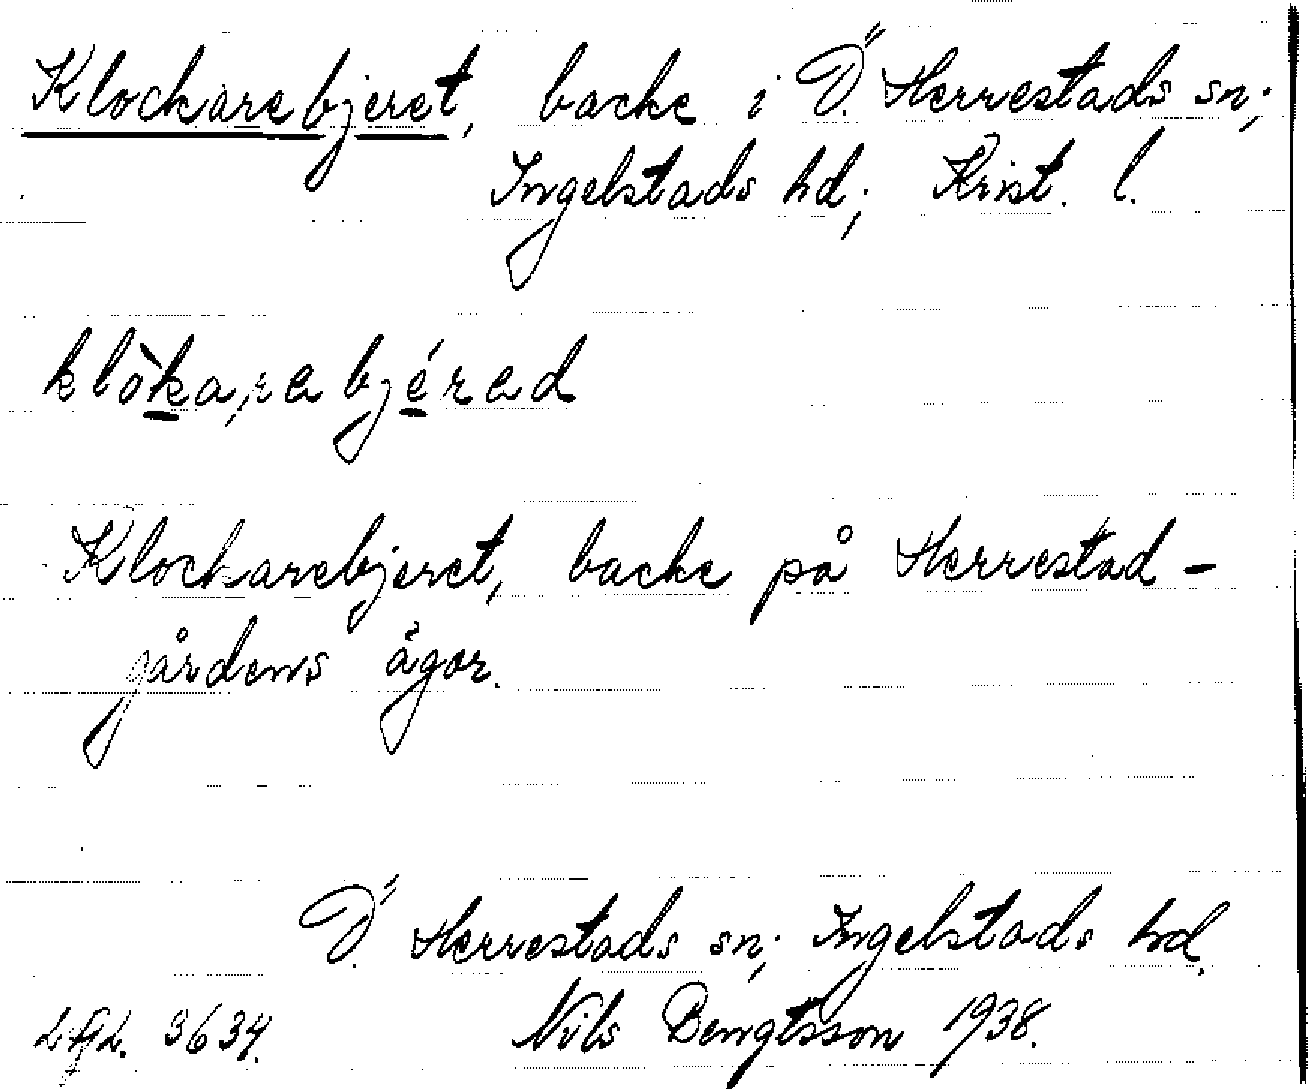 Klockarebjeret, backe i Ö. Herrestads sn;
Ingelstads hd; Krist. l.
klòkarabjérad
Klockarebjeret, backe på Herrestad-
gårdens ägor.
Ö. Herrestads sn; Ingelstads hd.
3634. Nils Bengtsson 1938.